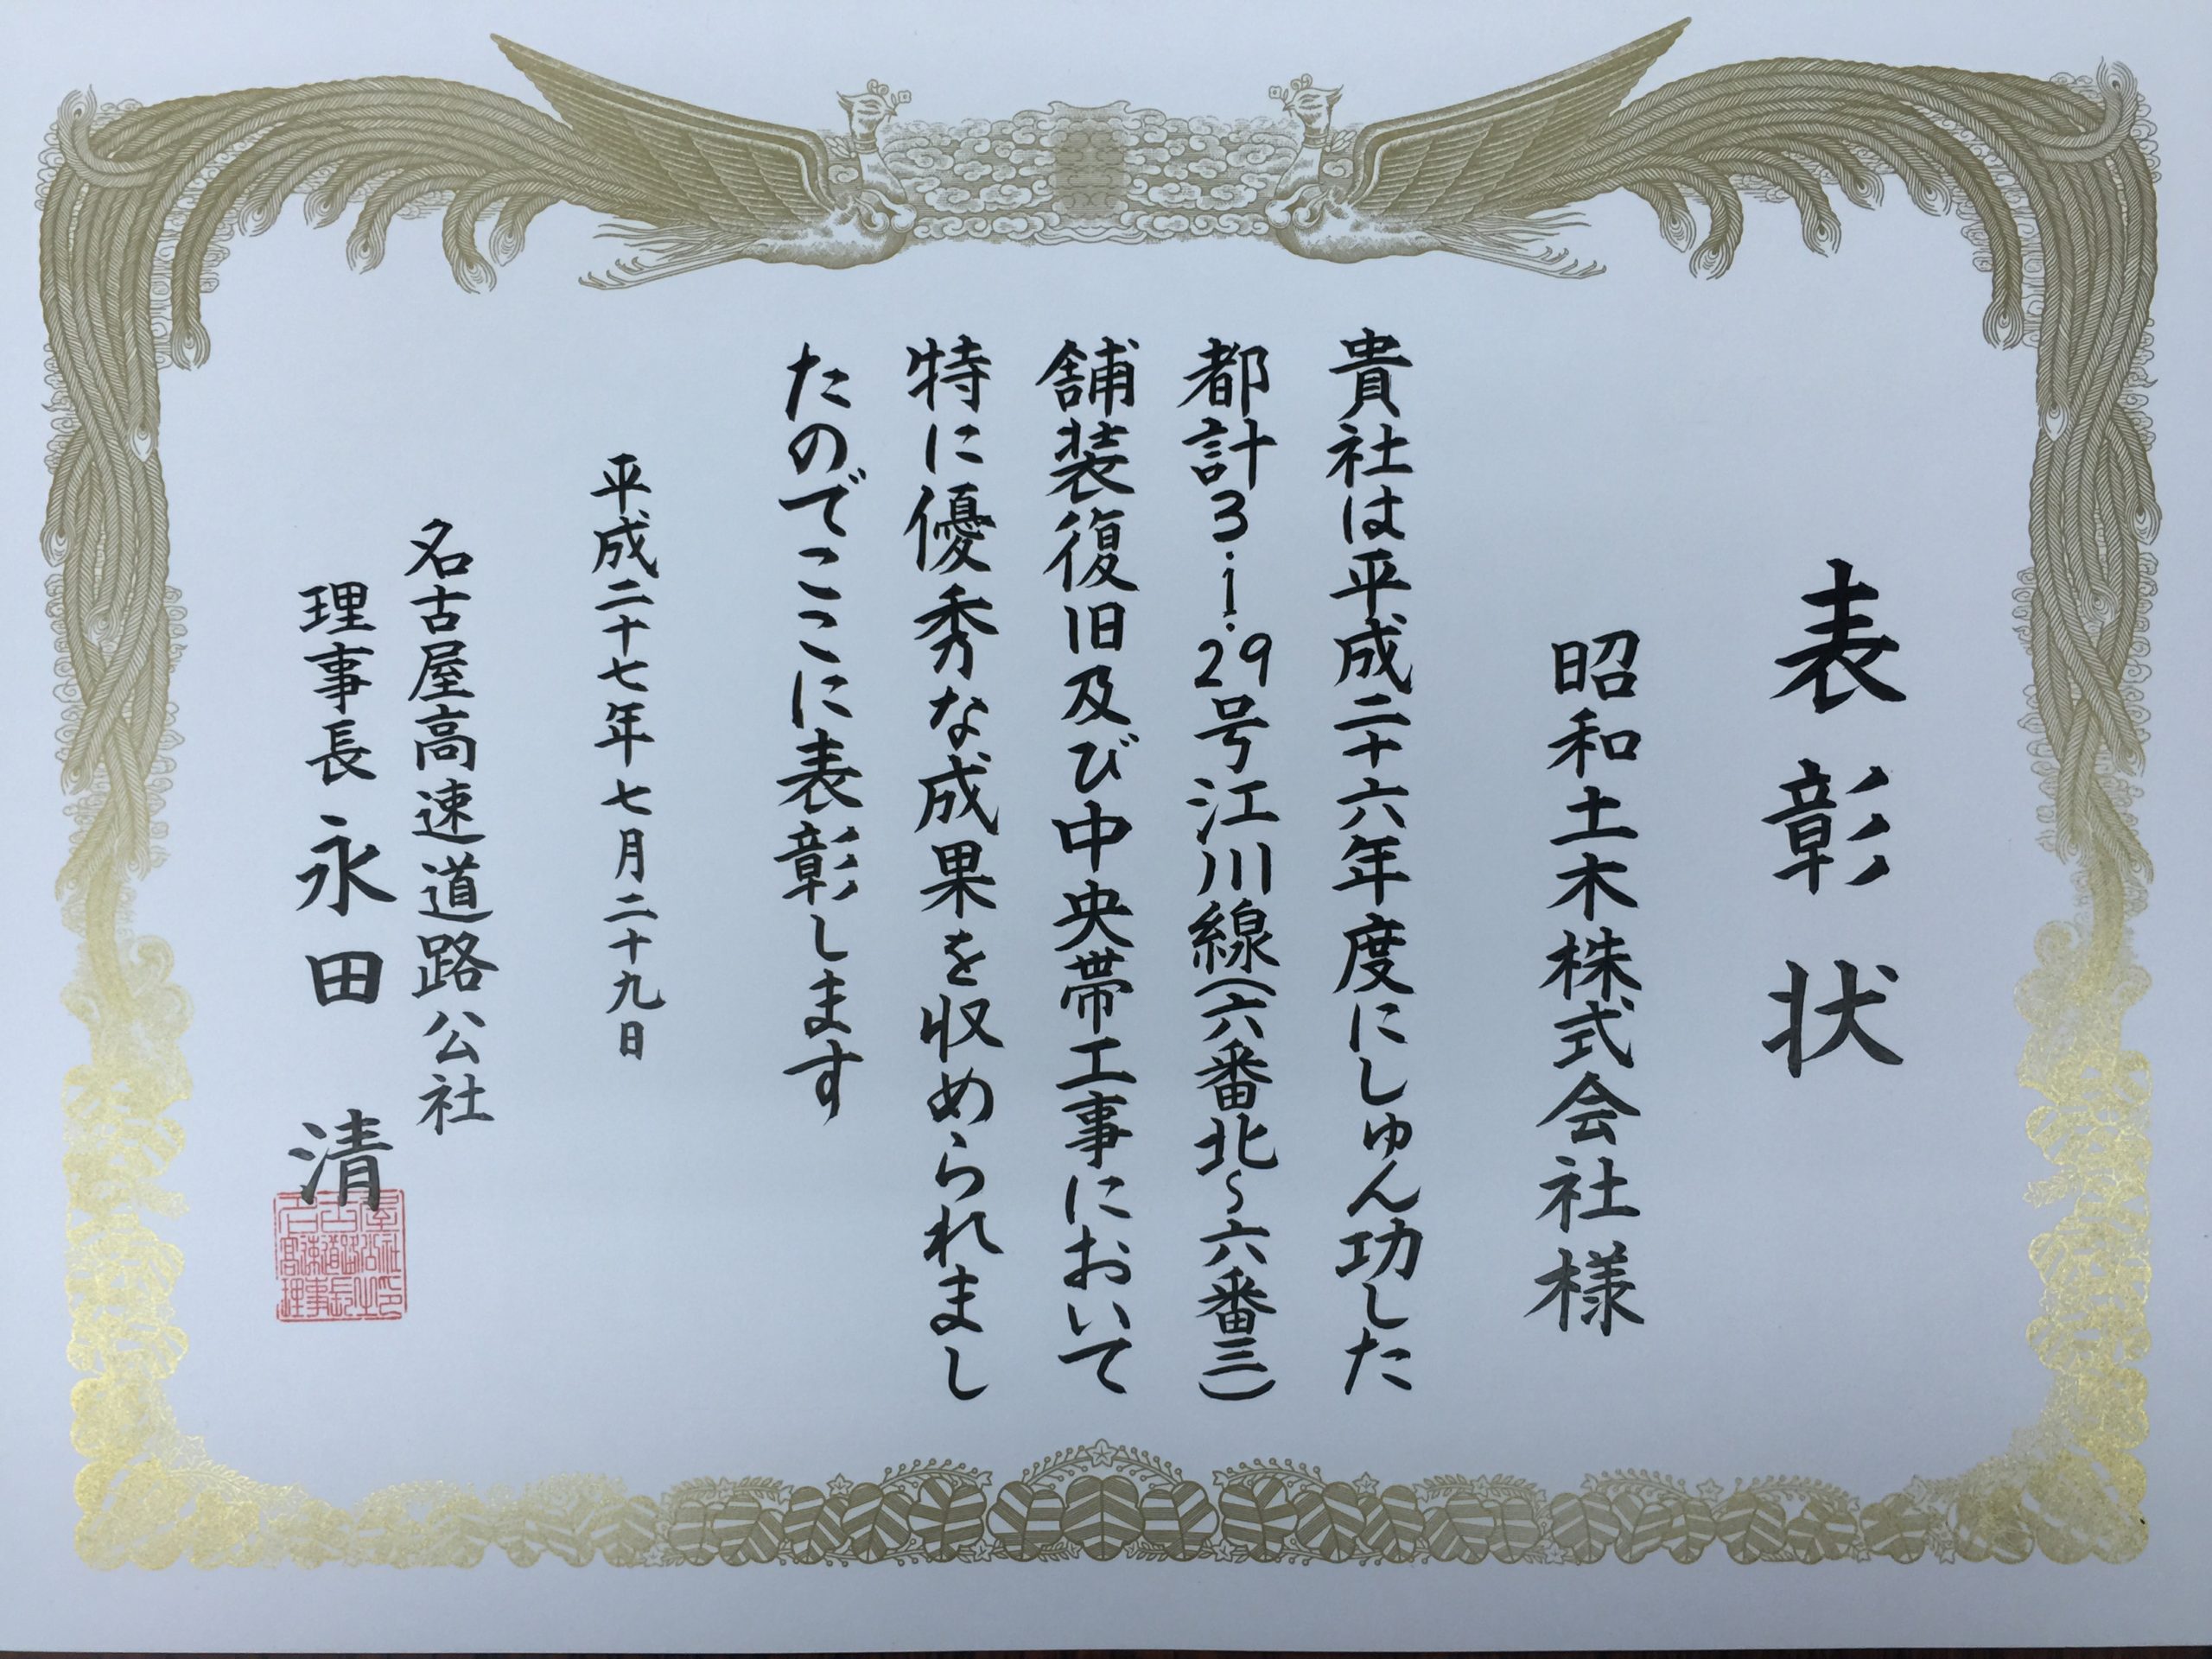 表彰状
昭和土木株式会社様
貴社は平成二十六年度にしゅん功した
都計3・1・29号江川線(六番北～六番三)
舗装復旧及び中央帯工事において
特に優秀な成果を収められまし
たのでここに表彰します
平成二十七年七月二十九日
名古屋高速道路公社
理事長 永田 清
名古屋
高速道路公社
理事長之印